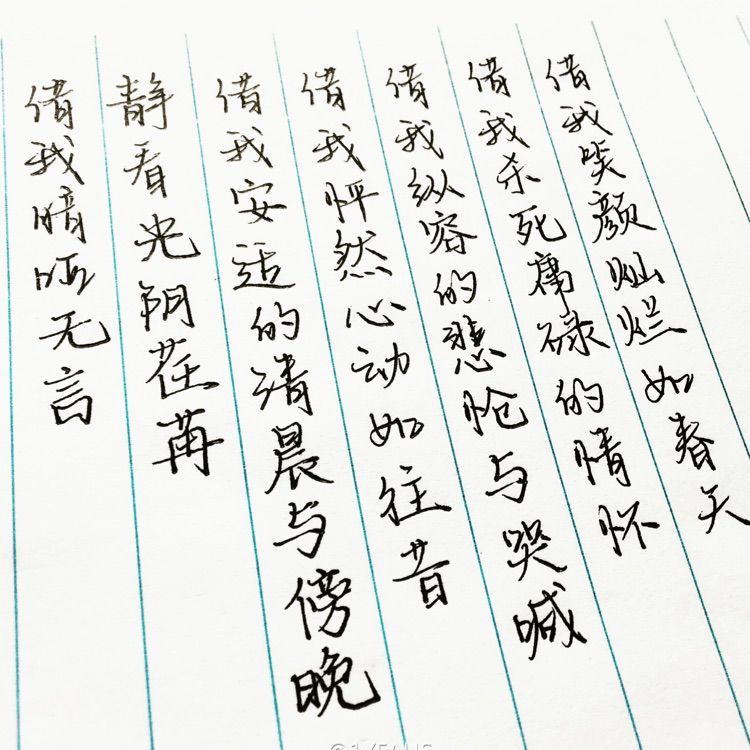 借我笑颜灿烂如春天
借我杀死庸碌的情怀
借我纵容的悲怆与哭喊
借我怦然心动如往昔
借我安适的清晨与傍晚
静看光阴荏苒
借我喑哑无言